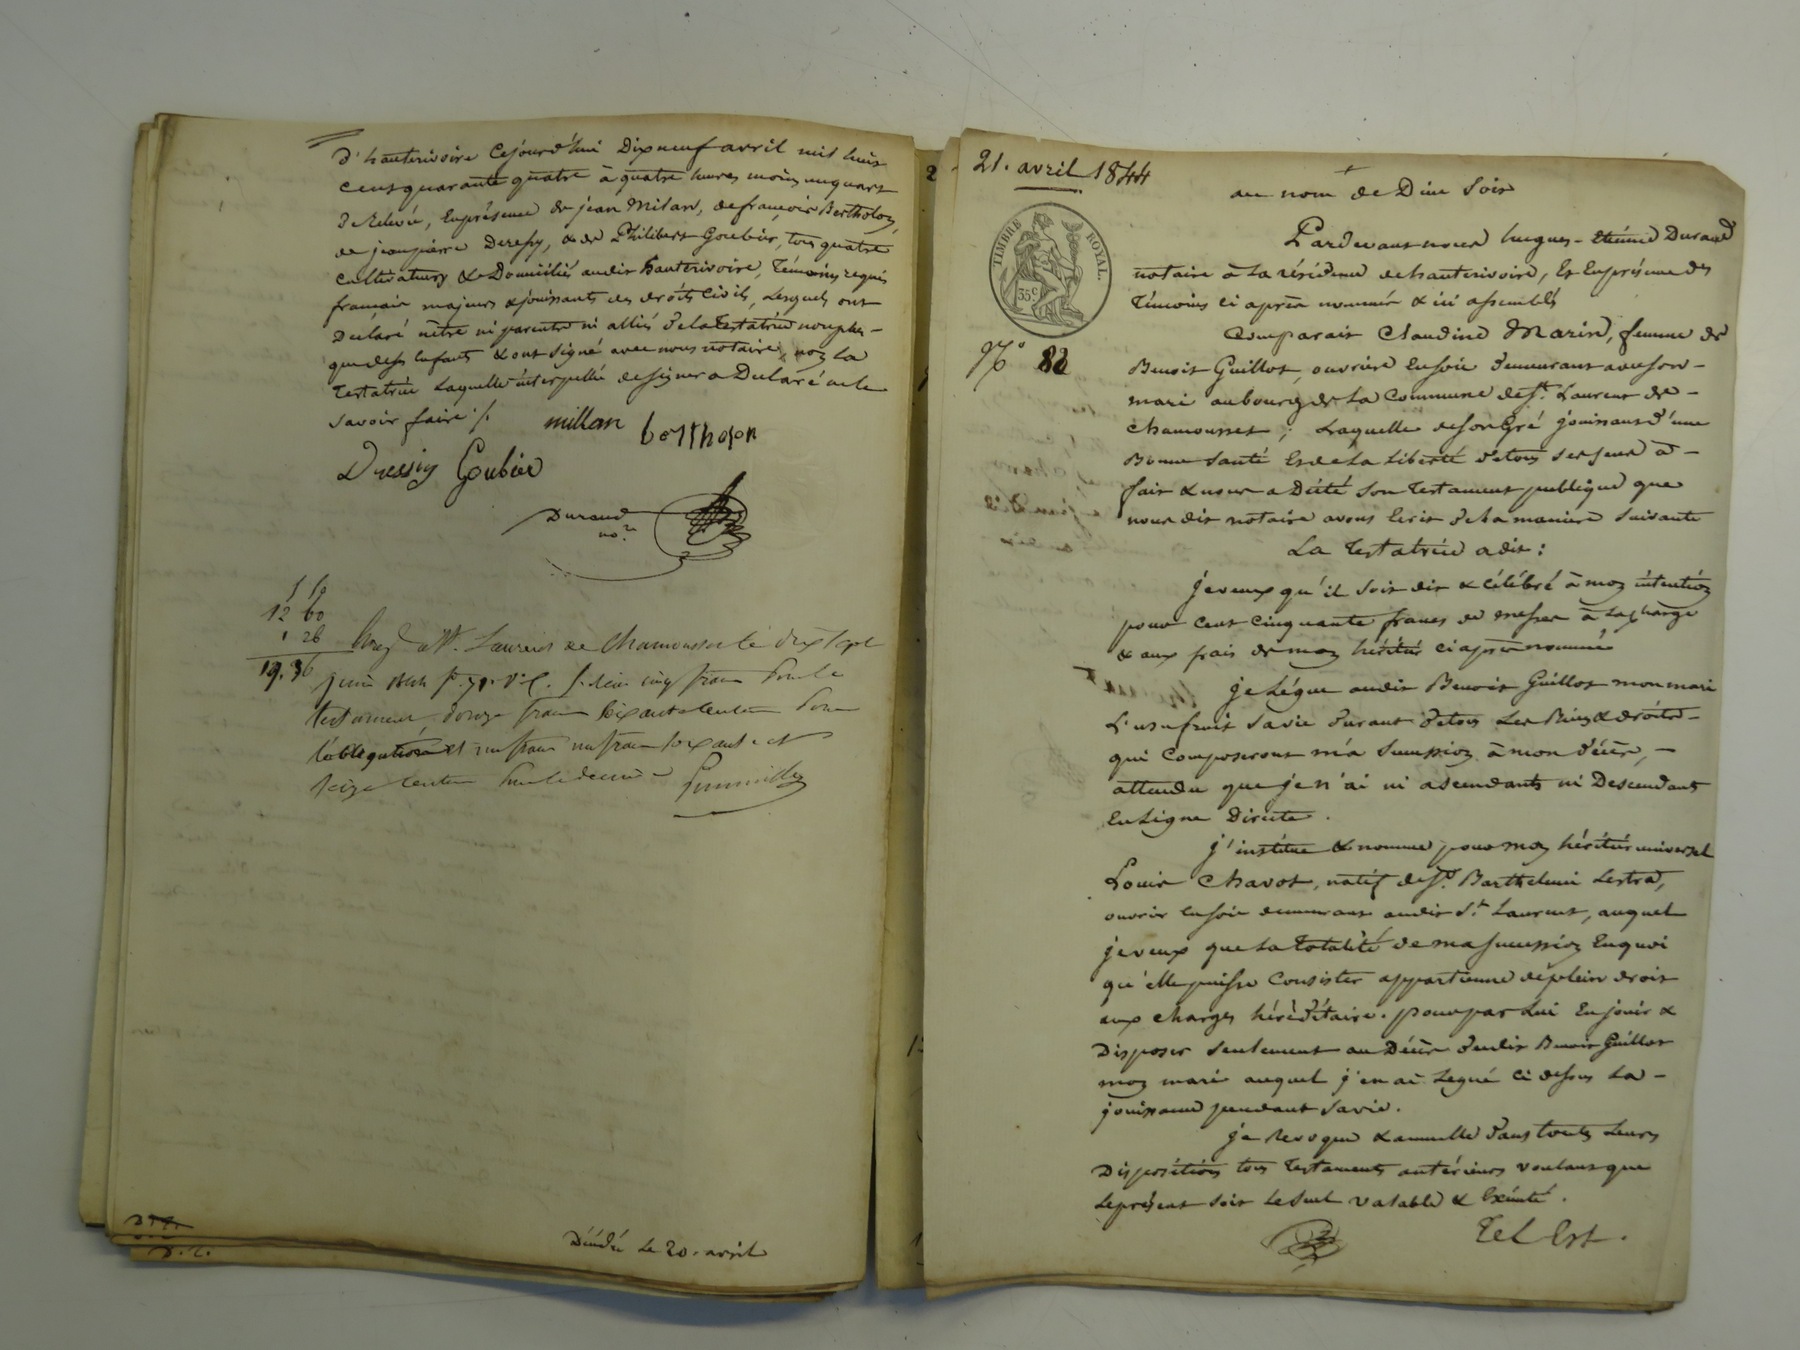 d'hauterivoire Cejourd'hui Dixneuf avril mil huit
cent quarante quatre à quatre heures moins unquart
de Relevée, En présence de jean Milan, de françois Bertholon,
de jeanpierre Deressy, & de Philibert Goubier, tous quatre
cultivateurs & Domiciliés audit hauterivoire, Témoins requis
français majeurs & jouissants des droits Civils, Lesquels ont
Déclaré nêtre ni parents ni alliés de la Testatrice nonplus-
que de ses Enfants & ont signé avec nous notaire, non La
Testatrice Laquelle interpellée de signer a Déclaré ne le
savoir faire ./.
millan
bertholon
Dressiy Goubier
Durand
no.re
12 60
1 26
19. 36
St. Laurent de Chamousset le dix sept
juin 1844 f. 71. v.o C. cinq francs Pour le
testament, douze francs soixante centimes Pour
l'obligation et un franc
seize centimes Pour le décime
Décédée Le 20. avril
2
21. avril 1844
au nom de Dieu soit
TIMBRE ROYAL.
35c
Pardevant nous hugues-Etienne Durand
notaire à La résidence de hauterivoire, Et En présence des
Témoins ci après nommés & ici assemblés
N.o 82
Comparait Claudine Marin, femme de
Benoit Guillot, ouvrière En soie demeurant avec son-
mari au bourg de La Commune de St. Laurent de-
chamousset; Laquelle de son Gré jouissant d'une
Bonne santé Et de La Liberté de tous ses sens a-
fait & nous a Dicté son Testament publique que
nous dit notaire avons Ecrit de la manière suivante
La Testatrice a dit:
je veux qu'il soit dit & célébré à mon intention
pour Cent cinquante francs de messes à La charge
& aux frais de mon héritier ci après nommé
je Légue audit Benoit Guillot mon mari
L'usufruit sa vie durant de tous Les Biens & droits-
qui Composeront ma succession à mon décès,-
attendu que je n'ai ni ascendants ni Descendants
En Ligne Directe.
j'institue & nomme pour mon héritier universel
Louis Chavot, natif de St. Barthelemi Lestra,
ouvrier en soie demeurant audit St. Laurent, auquel
je veux que La totalité de ma succession En quoi
qu'elle puisse Consister appartienne de plein droit
aux charges héréditaire. pour par Lui En jouir &
Disposer seulement au Décès dudit Benoit Guillot
mon mari auquel j'en ai Legué ci dessus La-
jouissance pendant sa vie.
je Revoque & annulle dans toutes Leurs
Dispositions tous Testaments antérieurs voulant que
Le présent soit Le seul valable & Exécuté.
Tel Est.